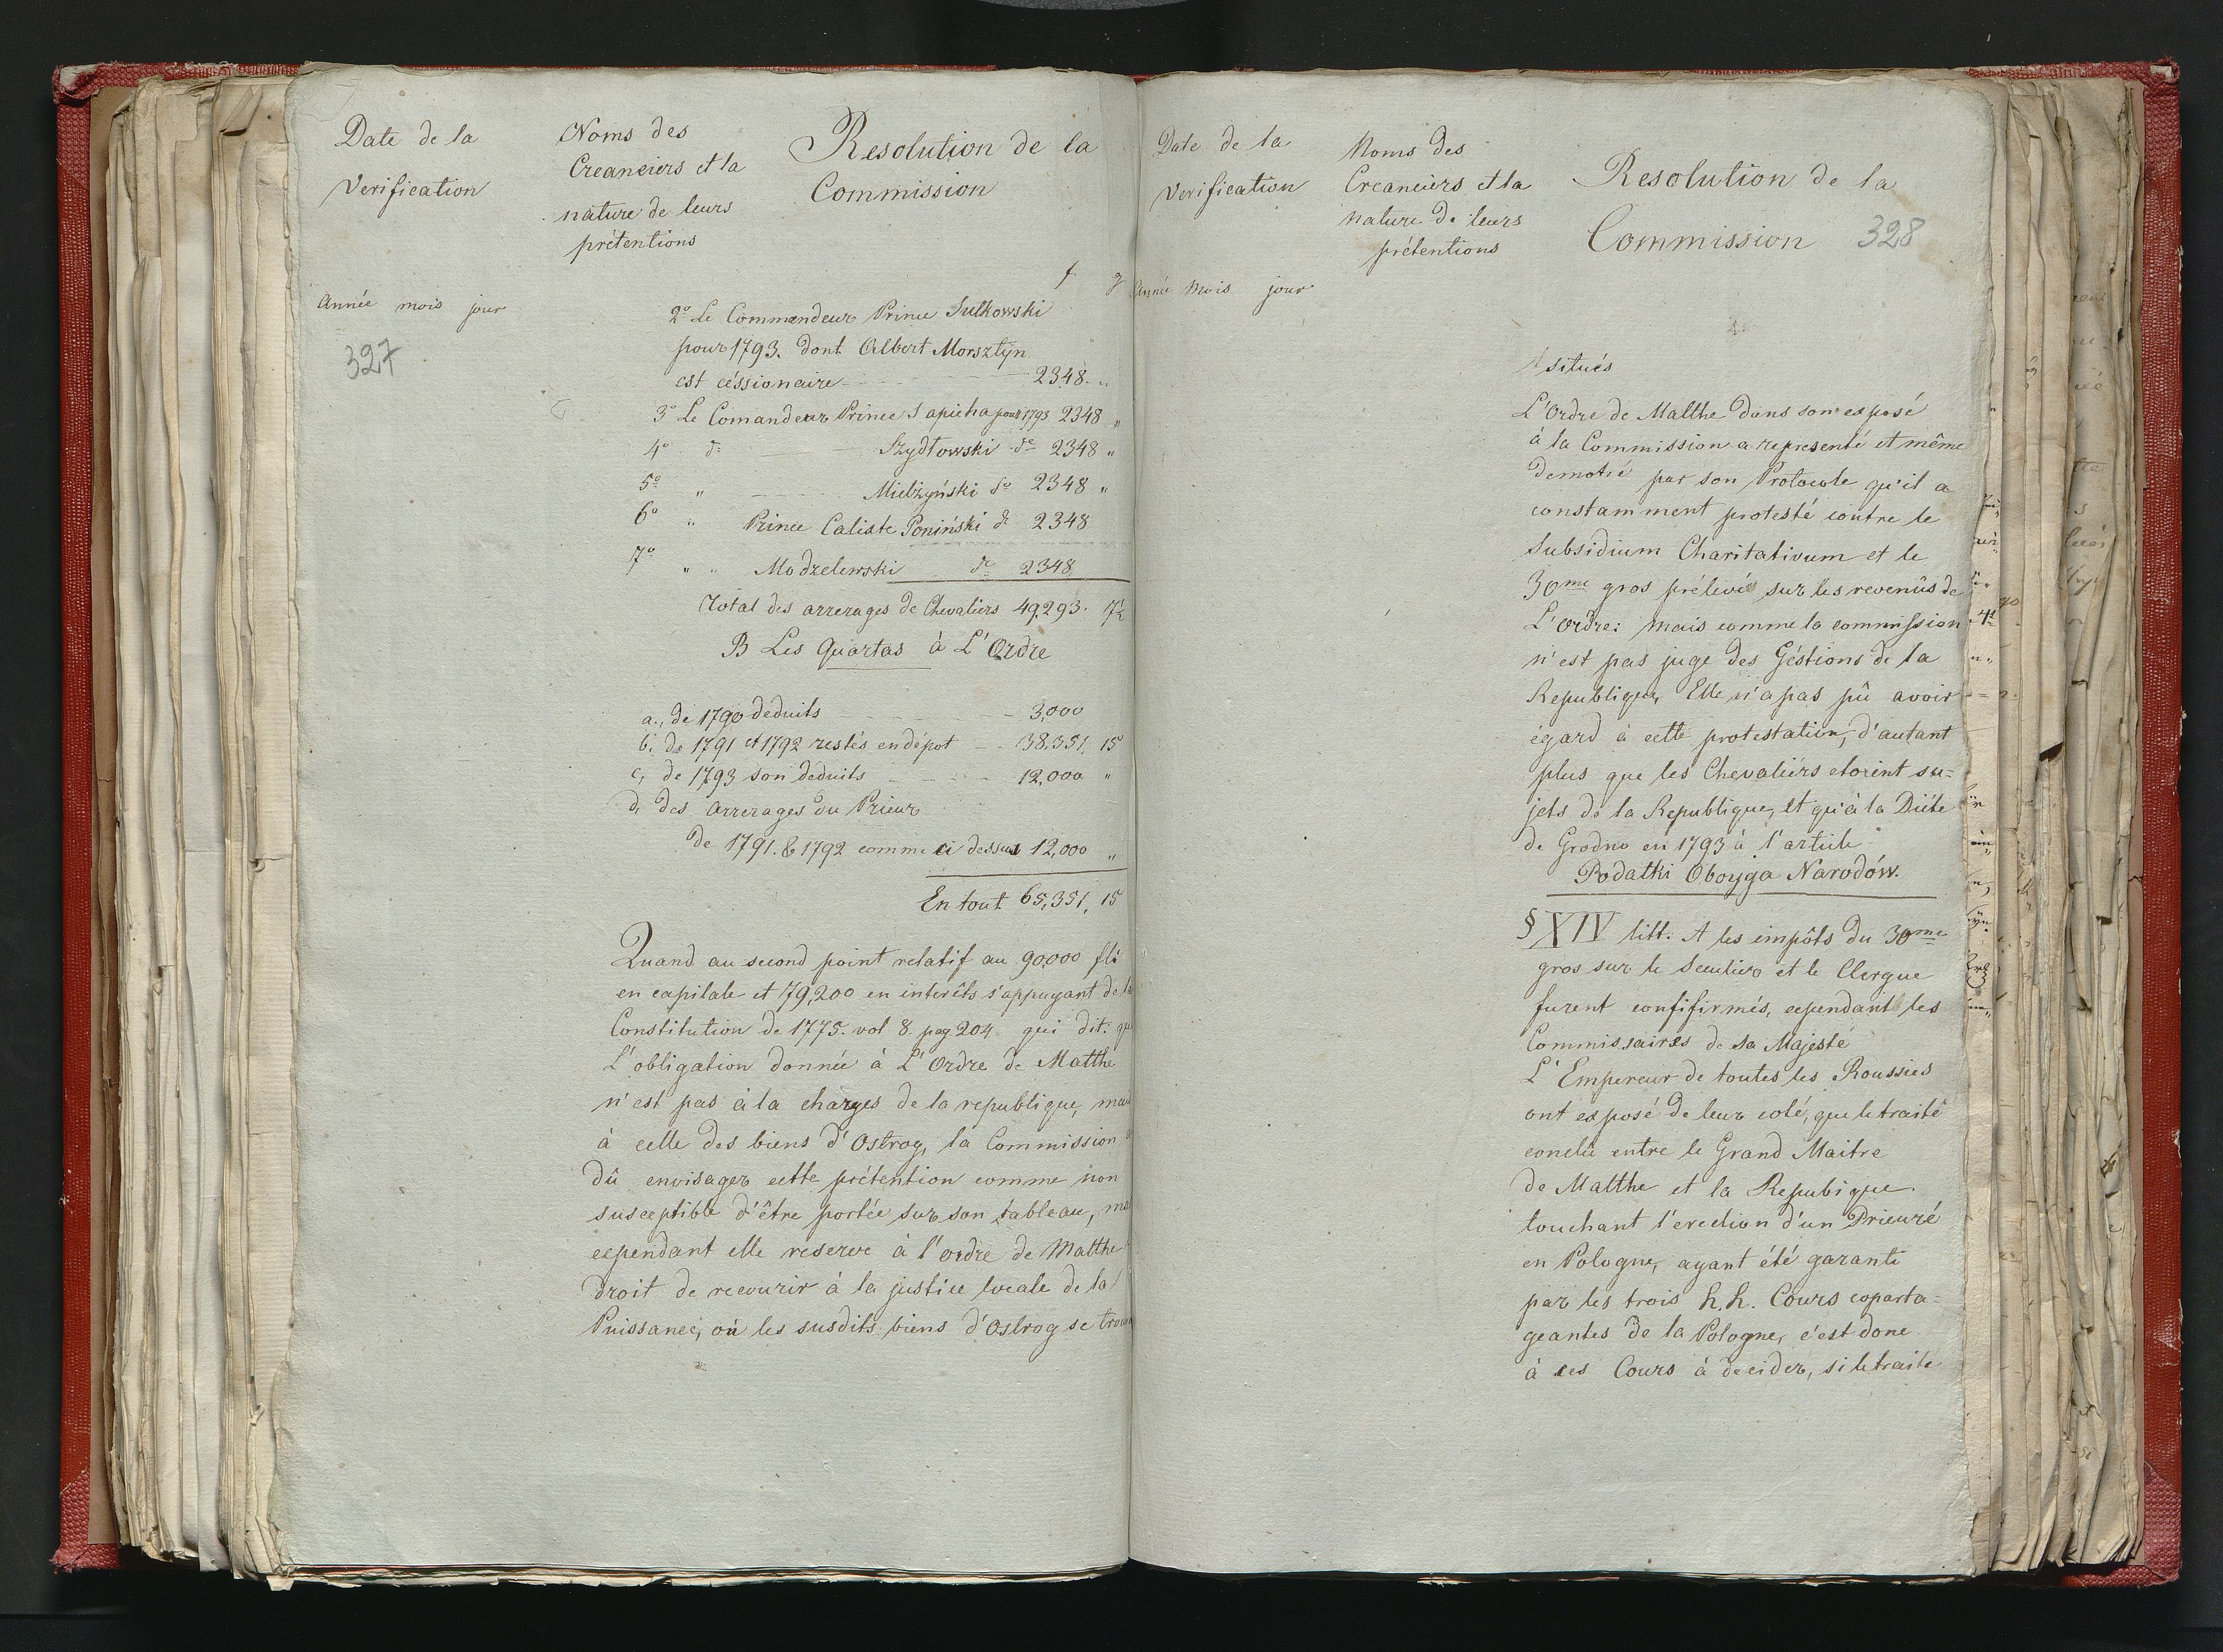 Date de la
Verification
Noms des
Creanciers et la
nature de leurs
prétentions
Resolution de la
Commission
f g
Année mois jour
327
2° Le Commendeur Prince Sulkowski
pour 1793. dont Albert Morsztÿn
est céssionaire 2348 "
3° Le Comandeur Prince Sapieha pour 1793 2348 "
4° d° Szydłowski d° 2348 "
5° " Mielżyński d° 2348 "
6° " Prince Caliste Poniński d° 2348
7° " " Modzelewski d° 2348
Total des arrerages de Chevaliers 49,293. 7½
B Les Quartas à L'Ordre
a., de 1790 deduits 3,000
b. de 1791 et 1792 restés en dépot 38,351, 15
c, de 1793 son deduits 12,000 "
d, des arrerages du Prieur
de 1791. & 1792 comme ci dessus 12,000 "
En tout 65,351, 15
Quand au second point relatif au 90,000 fl:
en capitale et 79,200 en interêts s'appuyant de la
Constitution de 1775. vol 8. pag 204 qui dit: qu
L'obligation donnée à L'Ordre de Malthe
n'est pas à la charges de la republique, mai
à celle des biens d'Ostrog, la Commission a
dû envisager cette prétention comme non
susceptible d'être portée sur son tableau, ma
cependant elle réserve à l'ordre de Malthe
droit de recourir à la justice locale de la
Puissance, où les susdits biens d'Ostrog se trouv
Date de la
Verification
Noms des
Creanciers et la
nature de leurs
prétentions
Resolution de la
Commission 328
Année Mois jour
situés
L'Ordre de Malthe dans son exposé
à la Commission a representé et même
demotré par son Protocole qu'il a
constamment protesté contre le
Subsidium Charitativum et le
30me gros prélevé sur les revenûs de
L'Ordre: mais comme la commission
n'est pas juge des Géstions de la
Republique, Elle n'a pas pû avoir
égard à cette protestation, d'autant
plus que les Chevaliérs etoient su=
jets de la Republique, et qu'à la Diéte
de Grodno en 1793 à l'article
Podatki Oboyga Narodów.
§ XIV litt: A les impôts du 30me
gros sur le Seculier et le Clergue
furent confifirmés, cependant les
Commissaires de Sa Majesté
L'Empereur de toutes les Roussies
ont exposé de leur coté, que le traité
conclû entre le Grand Maitre
de Malthe et la Repubique
touchant l'erection d'un Prieuré
en Pologne, ayant été garanti
par les trois h.h. Cours coparta=
geantes de la Pologne, c'est donc
à ces Cours à decider, si le traite